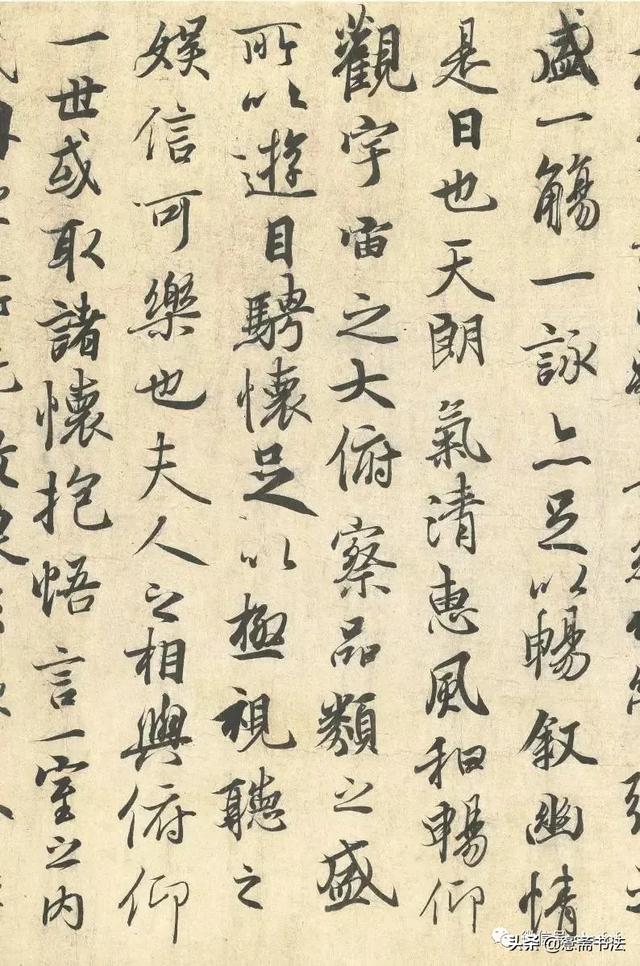 盛一觴一詠亦足以暢叙幽情
是日也天朗氣清惠風和暢仰
觀宇宙之大俯察品類之盛
所以遊目騁懷足以極視聽之
娛信可樂也夫人之相與俯仰
一世或取諸懷抱悟言一室之内
头条